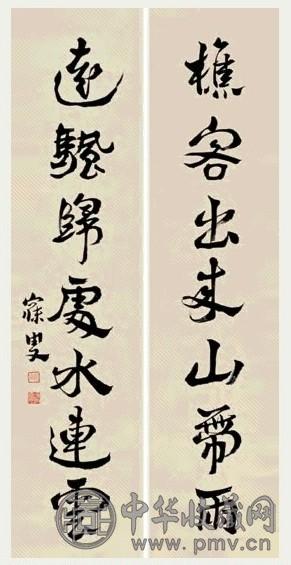 樵客出来山帶雨
遠颿歸處水連雲
寐叟
中华收藏网
www.pmv.cn